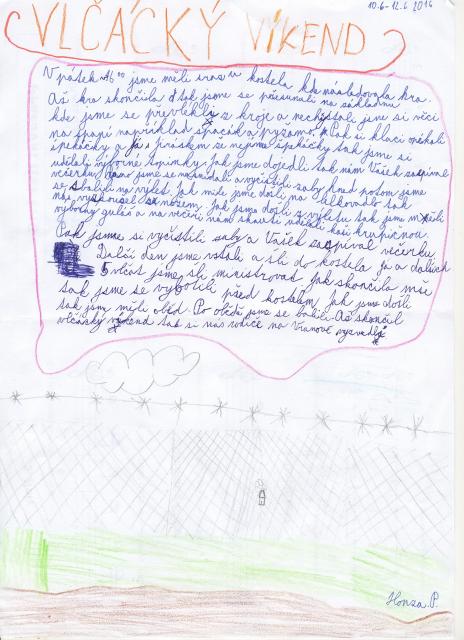 10.6-12.6 2016
VLČÁCKÝ VÍKEND
V pátek 16:00 jsme měli sraz u kostela kde následovala hra.
Až hra skončila tak jsme se přesunuli na základnu
kde jsme se převlékly z kroje a nechystali jsme si věci
na spaní například spacák a pyžamo. Pak si kluci opékali
špekáčky a já s práskem se nejíme špekáčky tak jsme si
udělali výborné topinky. Jak jsme dojedli tak nám Vašek zazpíval
večerku. Ráno jsme se nasnídali a vyčistili zuby hned potom jsme
se sbalili na výlet. jak jsme došli na tak
nás vyzkoušel s nožem. Jak jsme došli z výletu tak jsme měli
výborný guláš a na večeři nám skauti udělali kaši krupičnou.
Pak jsme si vyčistili zuby a Vašek zazpíval večerku.
Další den jsme vstali a šli do kostela já a dalších
5 vlčat jsme šli ministrovat jak skončila mše
tak jsme se vyfotili před kostelem, jak jsme došli
tak jsme měli oběd. Po obědě jsme se balili. Až skončil
vlčácký víkend tak si nás rodiče na Vranově vyzvedli
Honza.P.